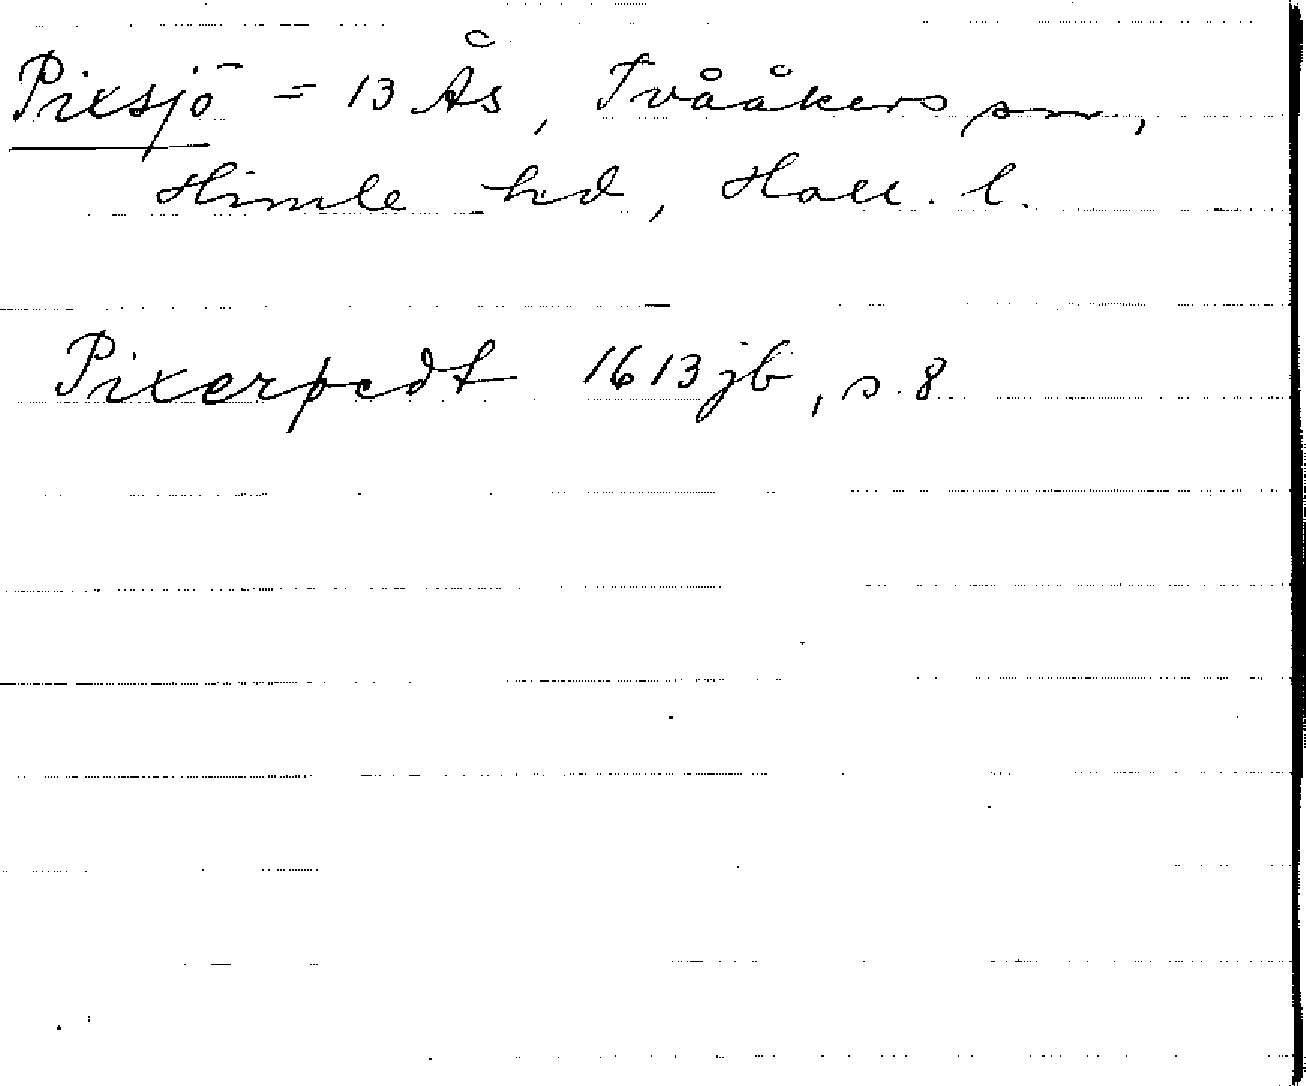 Pixsjö = 13 Ås, Tvååkers sn,
Himle hd, Hall. l.
Pixerpedt 1613 jb, s. 8